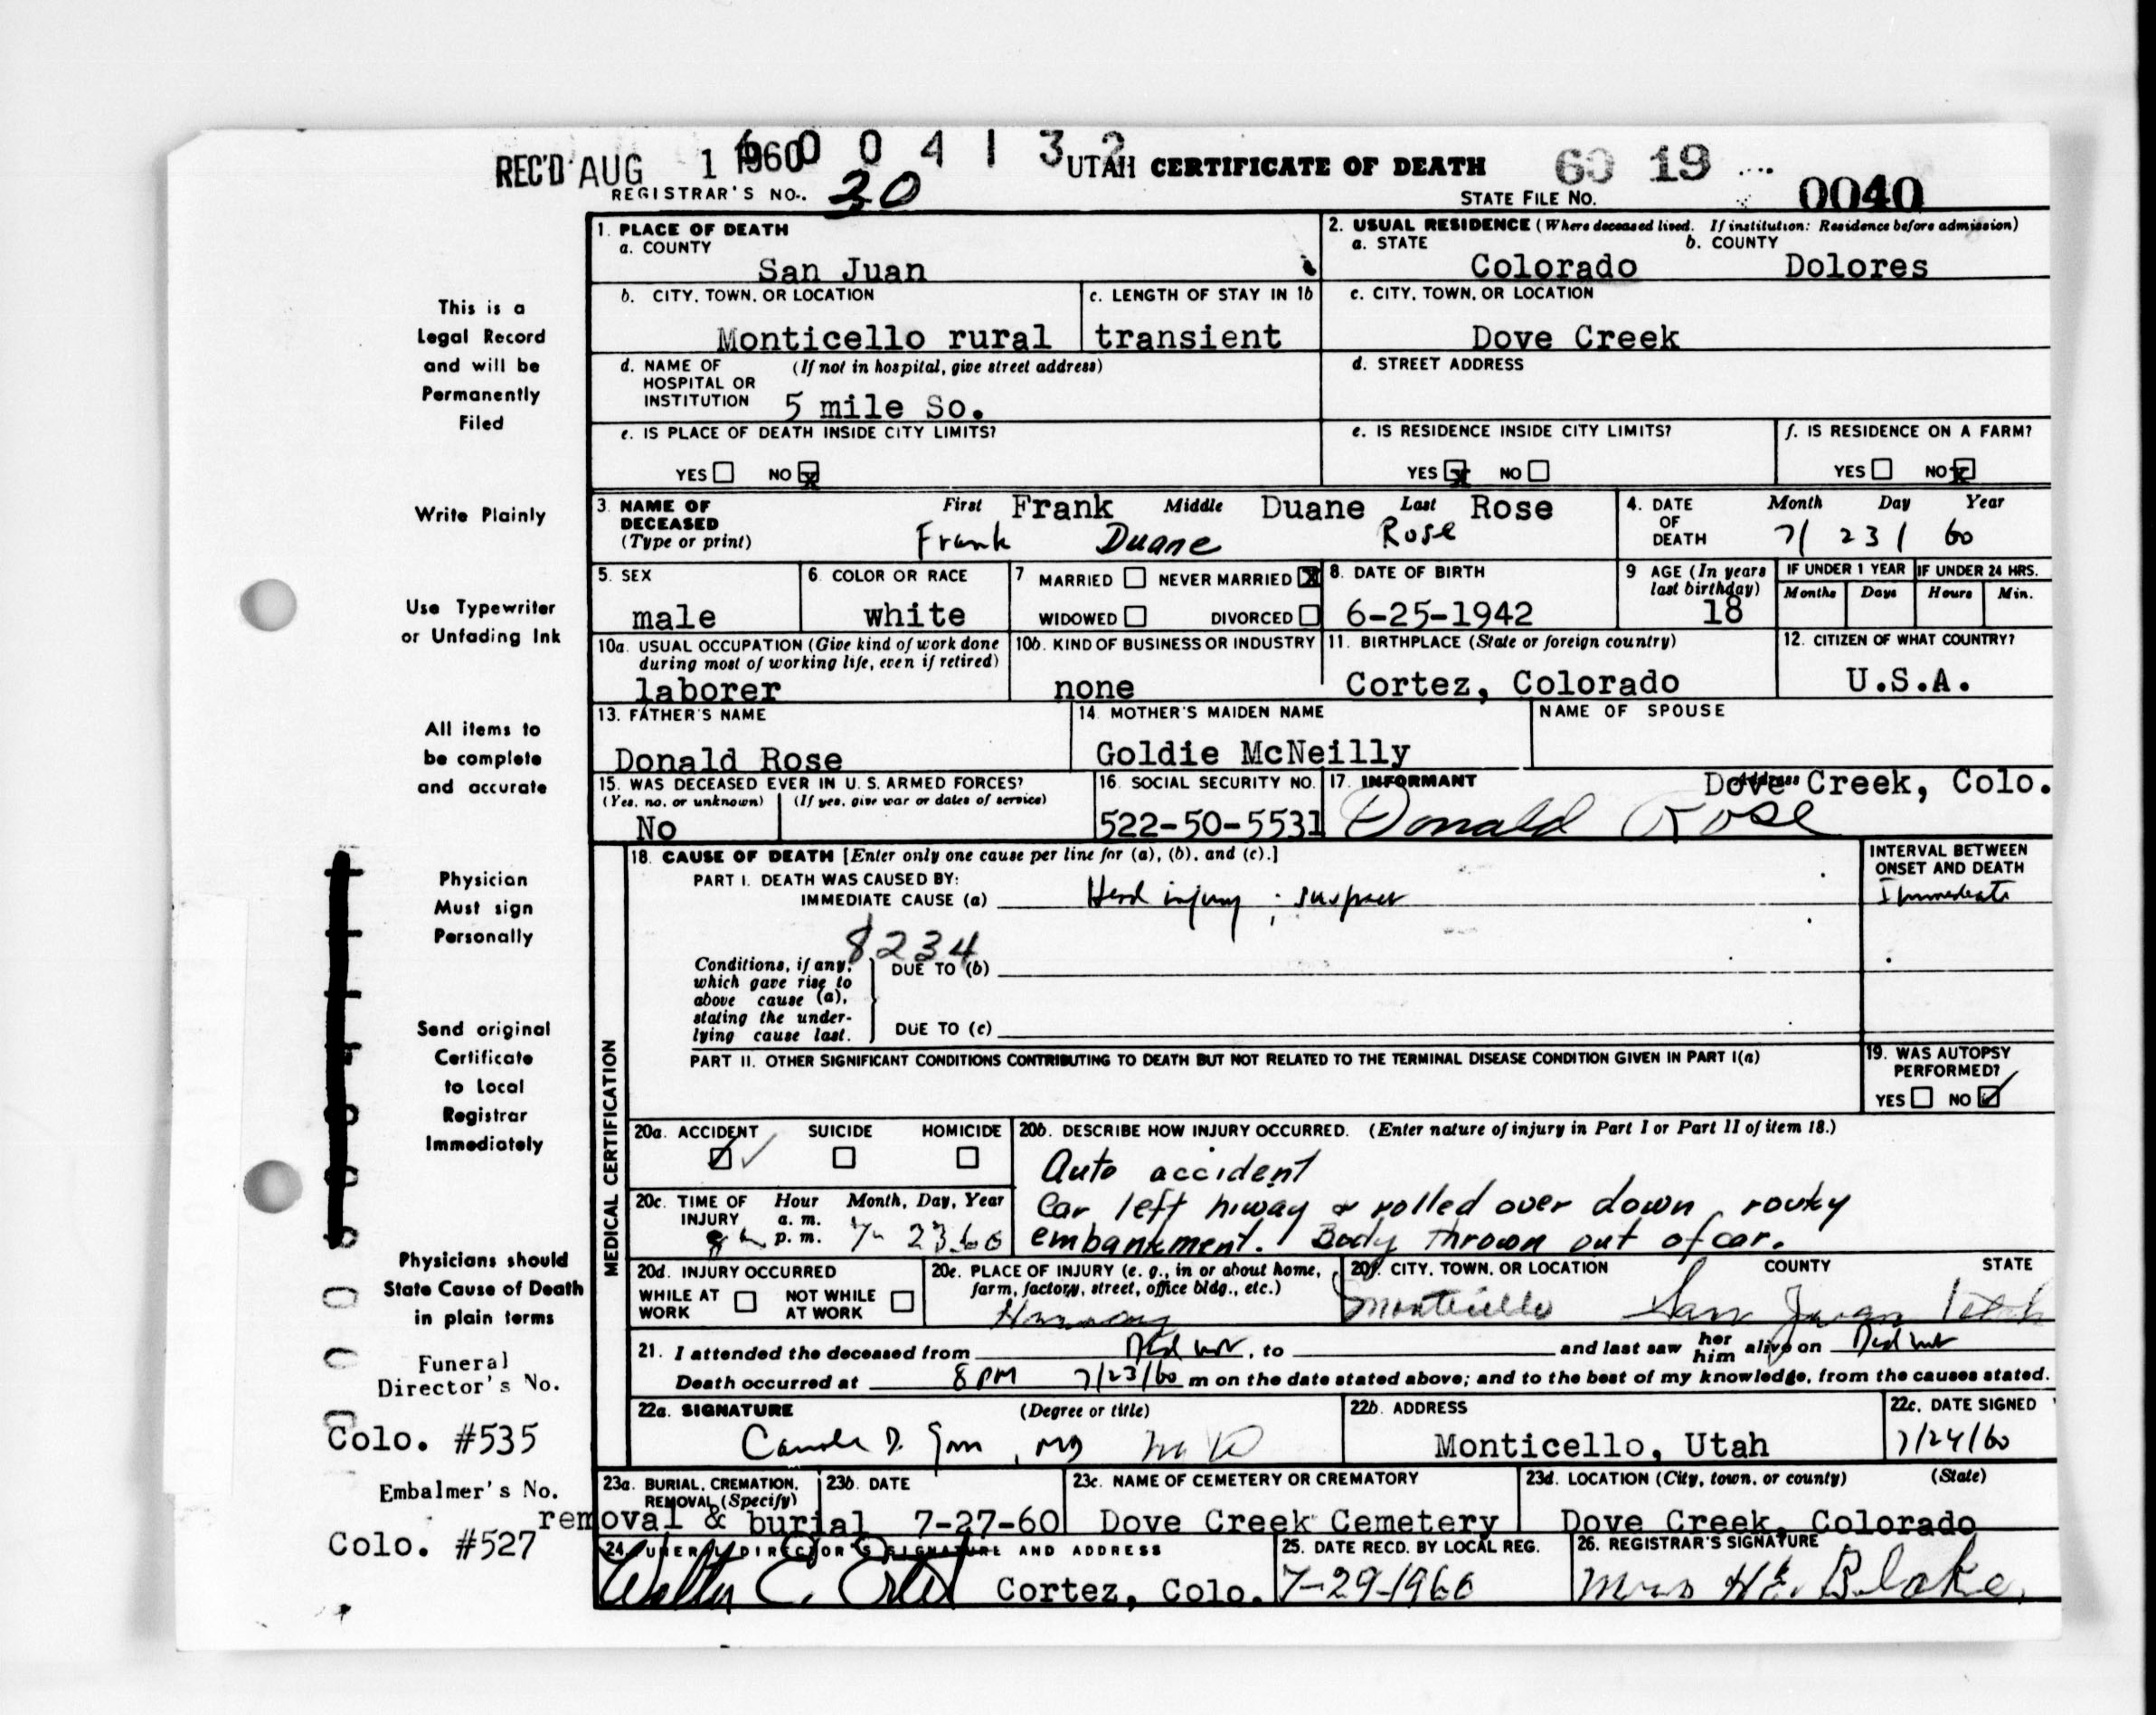 REC'D AUG 1 1960
6 0 0 4 1 3 2
UTAH CERTIFICATE OF DEATH
60 19
REGISTRAR'S NO. 20
STATE FILE NO. 0040
1. PLACE OF DEATH
a. COUNTY
San Juan
2. USUAL RESIDENCE (Where deceased lived. If institution: Residence before admission)
a. STATE b. COUNTY
Colorado Dolores
b. CITY, TOWN, OR LOCATION
Monticello rural
c. LENGTH OF STAY IN 1b
transient
c. CITY, TOWN, OR LOCATION
Dove Creek
d. NAME OF (If not in hospital, give street address)
HOSPITAL OR
INSTITUTION 5 mile So.
d. STREET ADDRESS
e. IS PLACE OF DEATH INSIDE CITY LIMITS?
YES NO x
e. IS RESIDENCE INSIDE CITY LIMITS?
YES x NO
f. IS RESIDENCE ON A FARM?
YES NO x
3. NAME OF
DECEASED
(Type or print)
First Frank Middle Duane Last Rose
Frank Duane Rose
4. DATE
OF
DEATH
Month Day Year
7/ 23/ 60
5. SEX
male
6. COLOR OR RACE
white
7 MARRIED NEVER MARRIED X
WIDOWED DIVORCED
8. DATE OF BIRTH
6-25-1942
9 AGE (In years
last birthday)
18
IF UNDER 1 YEAR IF UNDER 24 HRS.
Months Days Hours Min.
10a. USUAL OCCUPATION (Give kind of work done
during most of working life, even if retired)
laborer
10b. KIND OF BUSINESS OR INDUSTRY
none
11. BIRTHPLACE (State or foreign country)
Cortez, Colorado
12. CITIZEN OF WHAT COUNTRY?
U.S.A.
13. FATHER'S NAME
Donald Rose
14. MOTHER'S MAIDEN NAME
Goldie McNeilly
NAME OF SPOUSE
15. WAS DECEASED EVER IN U. S. ARMED FORCES?
(Yes, no, or unknown) (If yes, give war or dates of service)
No
16. SOCIAL SECURITY NO.
522-50-5531
17. INFORMANT Address
Dove Creek, Colo.
Donald Rose
MEDICAL CERTIFICATION
18. CAUSE OF DEATH [Enter only one cause per line for (a), (b), and (c).]
PART I. DEATH WAS CAUSED BY:
IMMEDIATE CAUSE (a) Head injury ; suspect
INTERVAL BETWEEN
ONSET AND DEATH
Immediate
8234
Conditions, if any,
which gave rise to
above cause (a),
stating the under-
lying cause last.
DUE TO (b)
DUE TO (c)
PART II. OTHER SIGNIFICANT CONDITIONS CONTRIBUTING TO DEATH BUT NOT RELATED TO THE TERMINAL DISEASE CONDITION GIVEN IN PART I(a)
19. WAS AUTOPSY
PERFORMED?
YES NO
20a. ACCIDENT SUICIDE HOMICIDE
20b. DESCRIBE HOW INJURY OCCURRED. (Enter nature of injury in Part I or Part II of item 18.)
Auto accident
Car left hiway & rolled over down rocky
embankment. Body thrown out of car.
20c. TIME OF Hour Month, Day, Year
INJURY a. m.
p. m. 23 60
20d. INJURY OCCURRED
WHILE AT NOT WHILE
WORK AT WORK
20e. PLACE OF INJURY (e. g., in or about home,
farm, factory, street, office bldg., etc.)
20f. CITY, TOWN, OR LOCATION COUNTY STATE
Monticello San Juan Utah
21. I attended the deceased from , to and last saw her him alive on
Death occurred at 8 PM 7/23/60 m on the date stated above; and to the best of my knowledge, from the causes stated.
22a. SIGNATURE (Degree or title)
MD M D
22b. ADDRESS
Monticello, Utah
22c. DATE SIGNED
7/24/60
23a. BURIAL, CREMATION,
REMOVAL (Specify)
removal & burial
23b. DATE
7-27-60
23c. NAME OF CEMETERY OR CREMATORY
Dove Creek Cemetery
23d. LOCATION (City, town, or county) (State)
Dove Creek, Colorado
24. FUNERAL DIRECTOR'S SIGNATURE AND ADDRESS
Walter E. Ertel Cortez, Colo.
25. DATE RECD. BY LOCAL REG.
7-29-1960
26. REGISTRAR'S SIGNATURE
Mrs H.E. Blake,
This is a
Legal Record
and will be
Permanently
Filed
Write Plainly
Use Typewriter
or Unfading Ink
All items to
be complete
and accurate
Physician
Must sign
Personally
Send original
Certificate
to Local
Registrar
Immediately
Physicians should
State Cause of Death
in plain terms
Funeral
Director's No.
Colo. #535
Embalmer's No.
Colo. #527